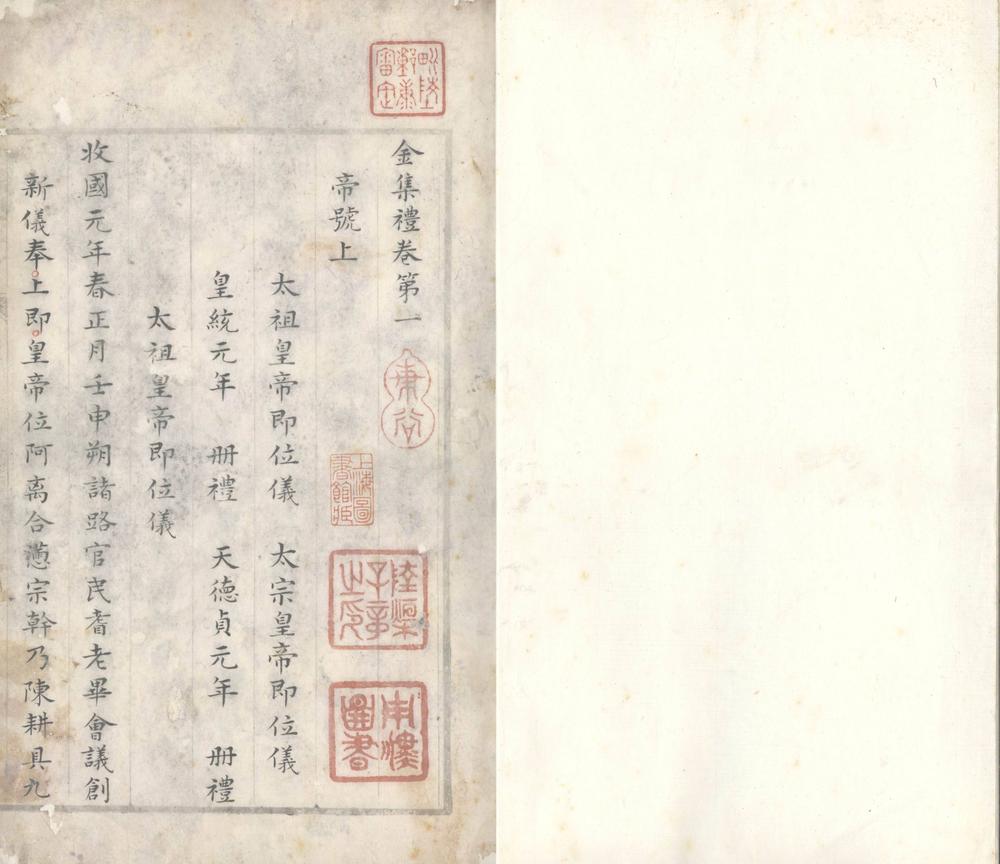 金集禮卷第一
帝號上
太祖皇帝即位儀 太宗皇帝即位儀
皇統元年 册禮 天德貞元年 册禮
太祖皇帝即位儀
收國元年春正月壬申朔諸路官民耆老畢會議創
新儀奉上即皇帝位阿离合懣宗幹乃陳耕具九
上海圖書館藏